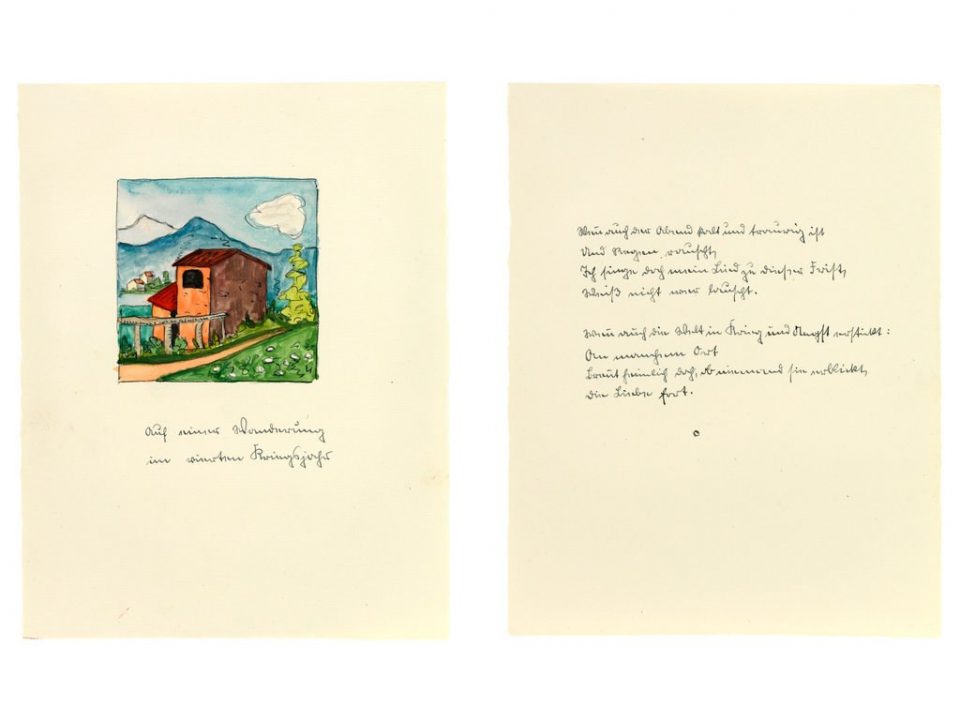 Auf einer Wanderung
im vierten Kriegsjahr
Wenn auch der Abend kalt und traurig ist
Und Regen rauscht,
Ich singe doch mein Lied zu dieser Frist,
Weiß nicht wer lauscht.
Wenn auch die Welt in Krieg und Angst erstickt:
An manchem Ort
Brennt heimlich doch, ob niemand sie erblickt,
Die Liebe fort.